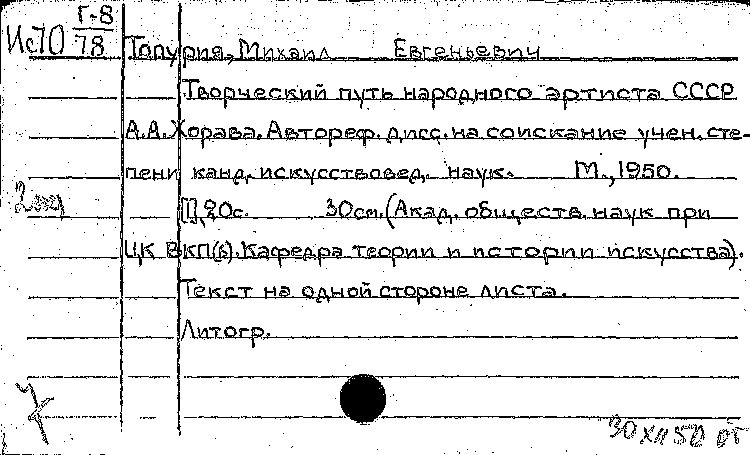 Ис70 Г-8/78
Топурия, Михаил Евгеньевич
Творческий путь народного артиста СССР
А.А.Хорава. Автореф. дисс. на соискание учен. сте-
пени канд. искусствовед. наук. М., 1950.
[1], 20с. 30см. (Акад. обществ. наук при
ЦК ВКП(б). Кафедра теории и истории искусства).
Текст на одной стороне листа.
Литогр.
30 XII 50